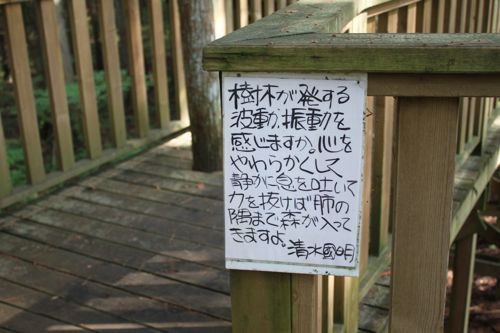 樹木が発する
波動、振動を
感じますか。心を
やわらかくして
静かに息を吐いて
力を抜けば肺の
隅まで森が入って
きますよ。清水國明